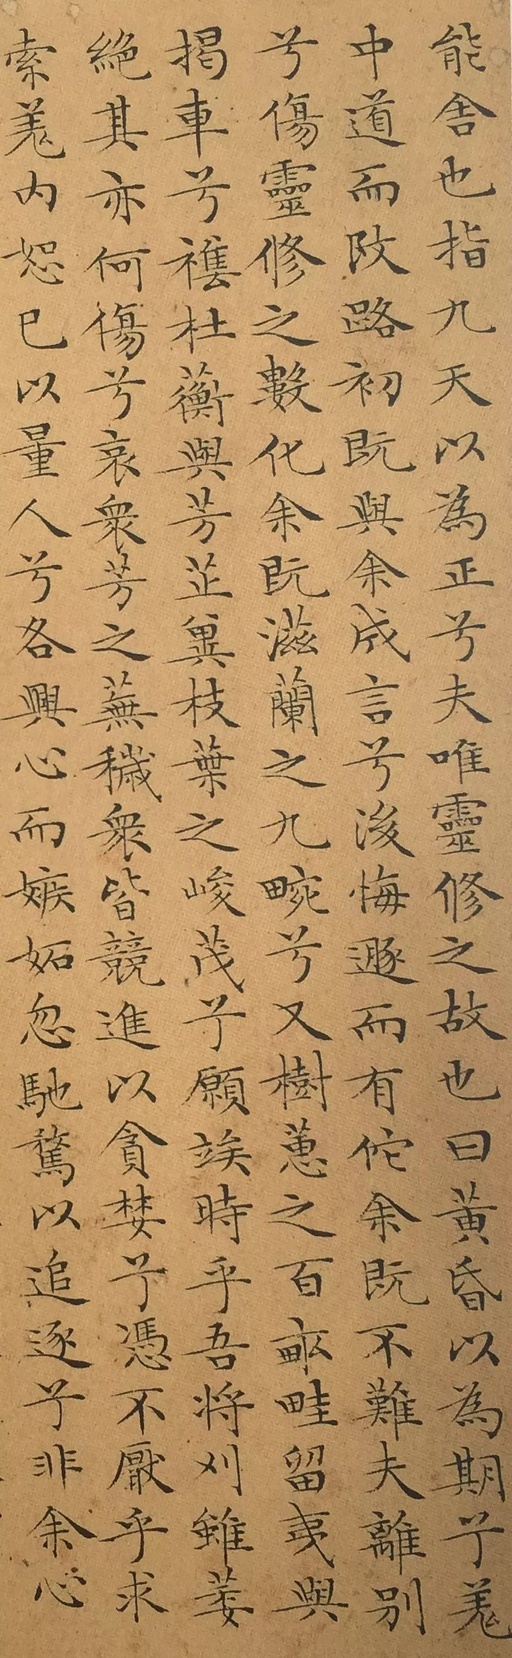 能舍也指九天以為正兮夫唯靈修之故也曰黃昏以為期兮羌
中道而改路初既與余成言兮後悔遯而有佗余既不難夫離别
兮傷靈修之數化余既滋蘭之九畹兮又樹蕙之百畝畦留夷與
揭車兮襍杜蘅與芳芷兾枝葉之峻茂兮願竢時乎吾將刈雖萎
絕其亦何傷兮哀衆芳之蕪穢衆皆競進以貪婪兮憑不厭乎求
索羌内恕已以量人兮各興心而嫉妬忽馳騖以追逐兮非余心